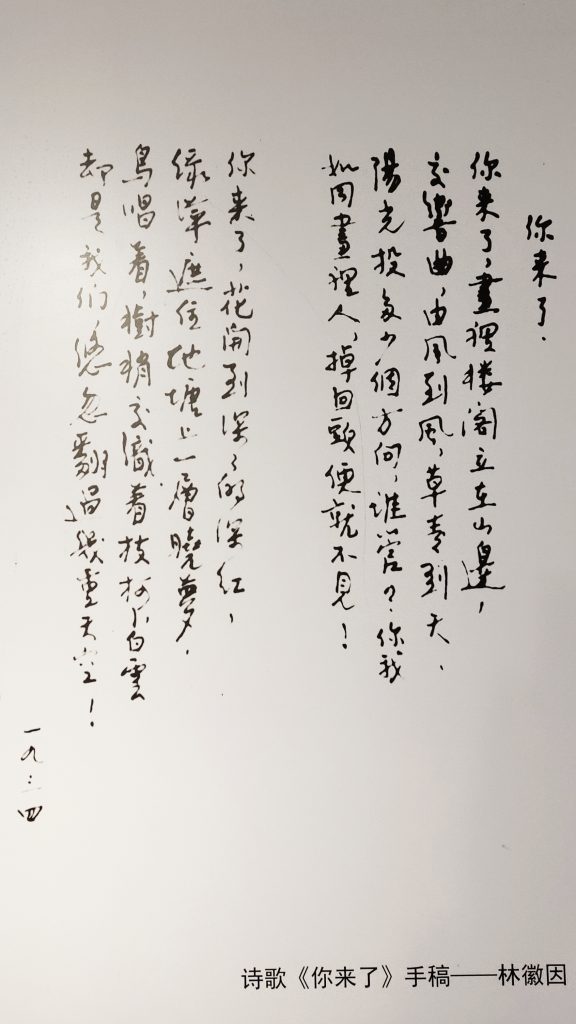 你来了.
你来了,畫裡楼閣立在山邊,
交響曲,由風到風,草青到天.
陽光投多少個方向,誰管?你我
如同畫裡人,掉回頭便就不見!
你来了,花開到深々的深紅,
綠萍遮住池塘上一層曉夢.
鳥唱着,樹梢交織着枝柯,白雲
却是我们悠忽翻過幾重天空!
一九三四
诗歌《你来了》手稿——林徽因